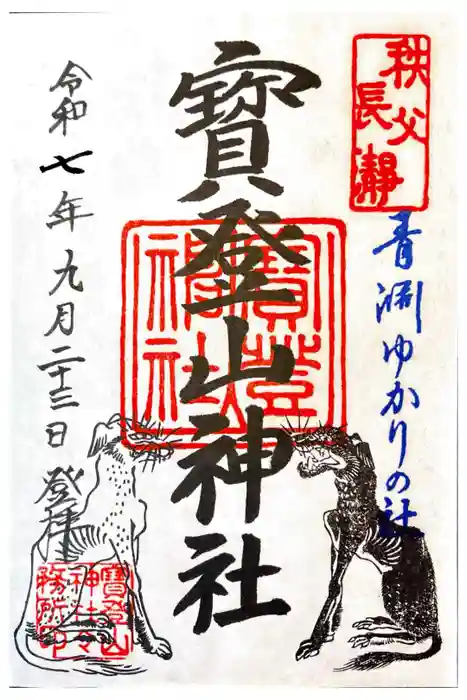 秩父
長瀞
青淵ゆかりの社
寳登山神社
寳登
山
神社
令和七年九月二十三日 登拝
寳登山
神社社
務所印